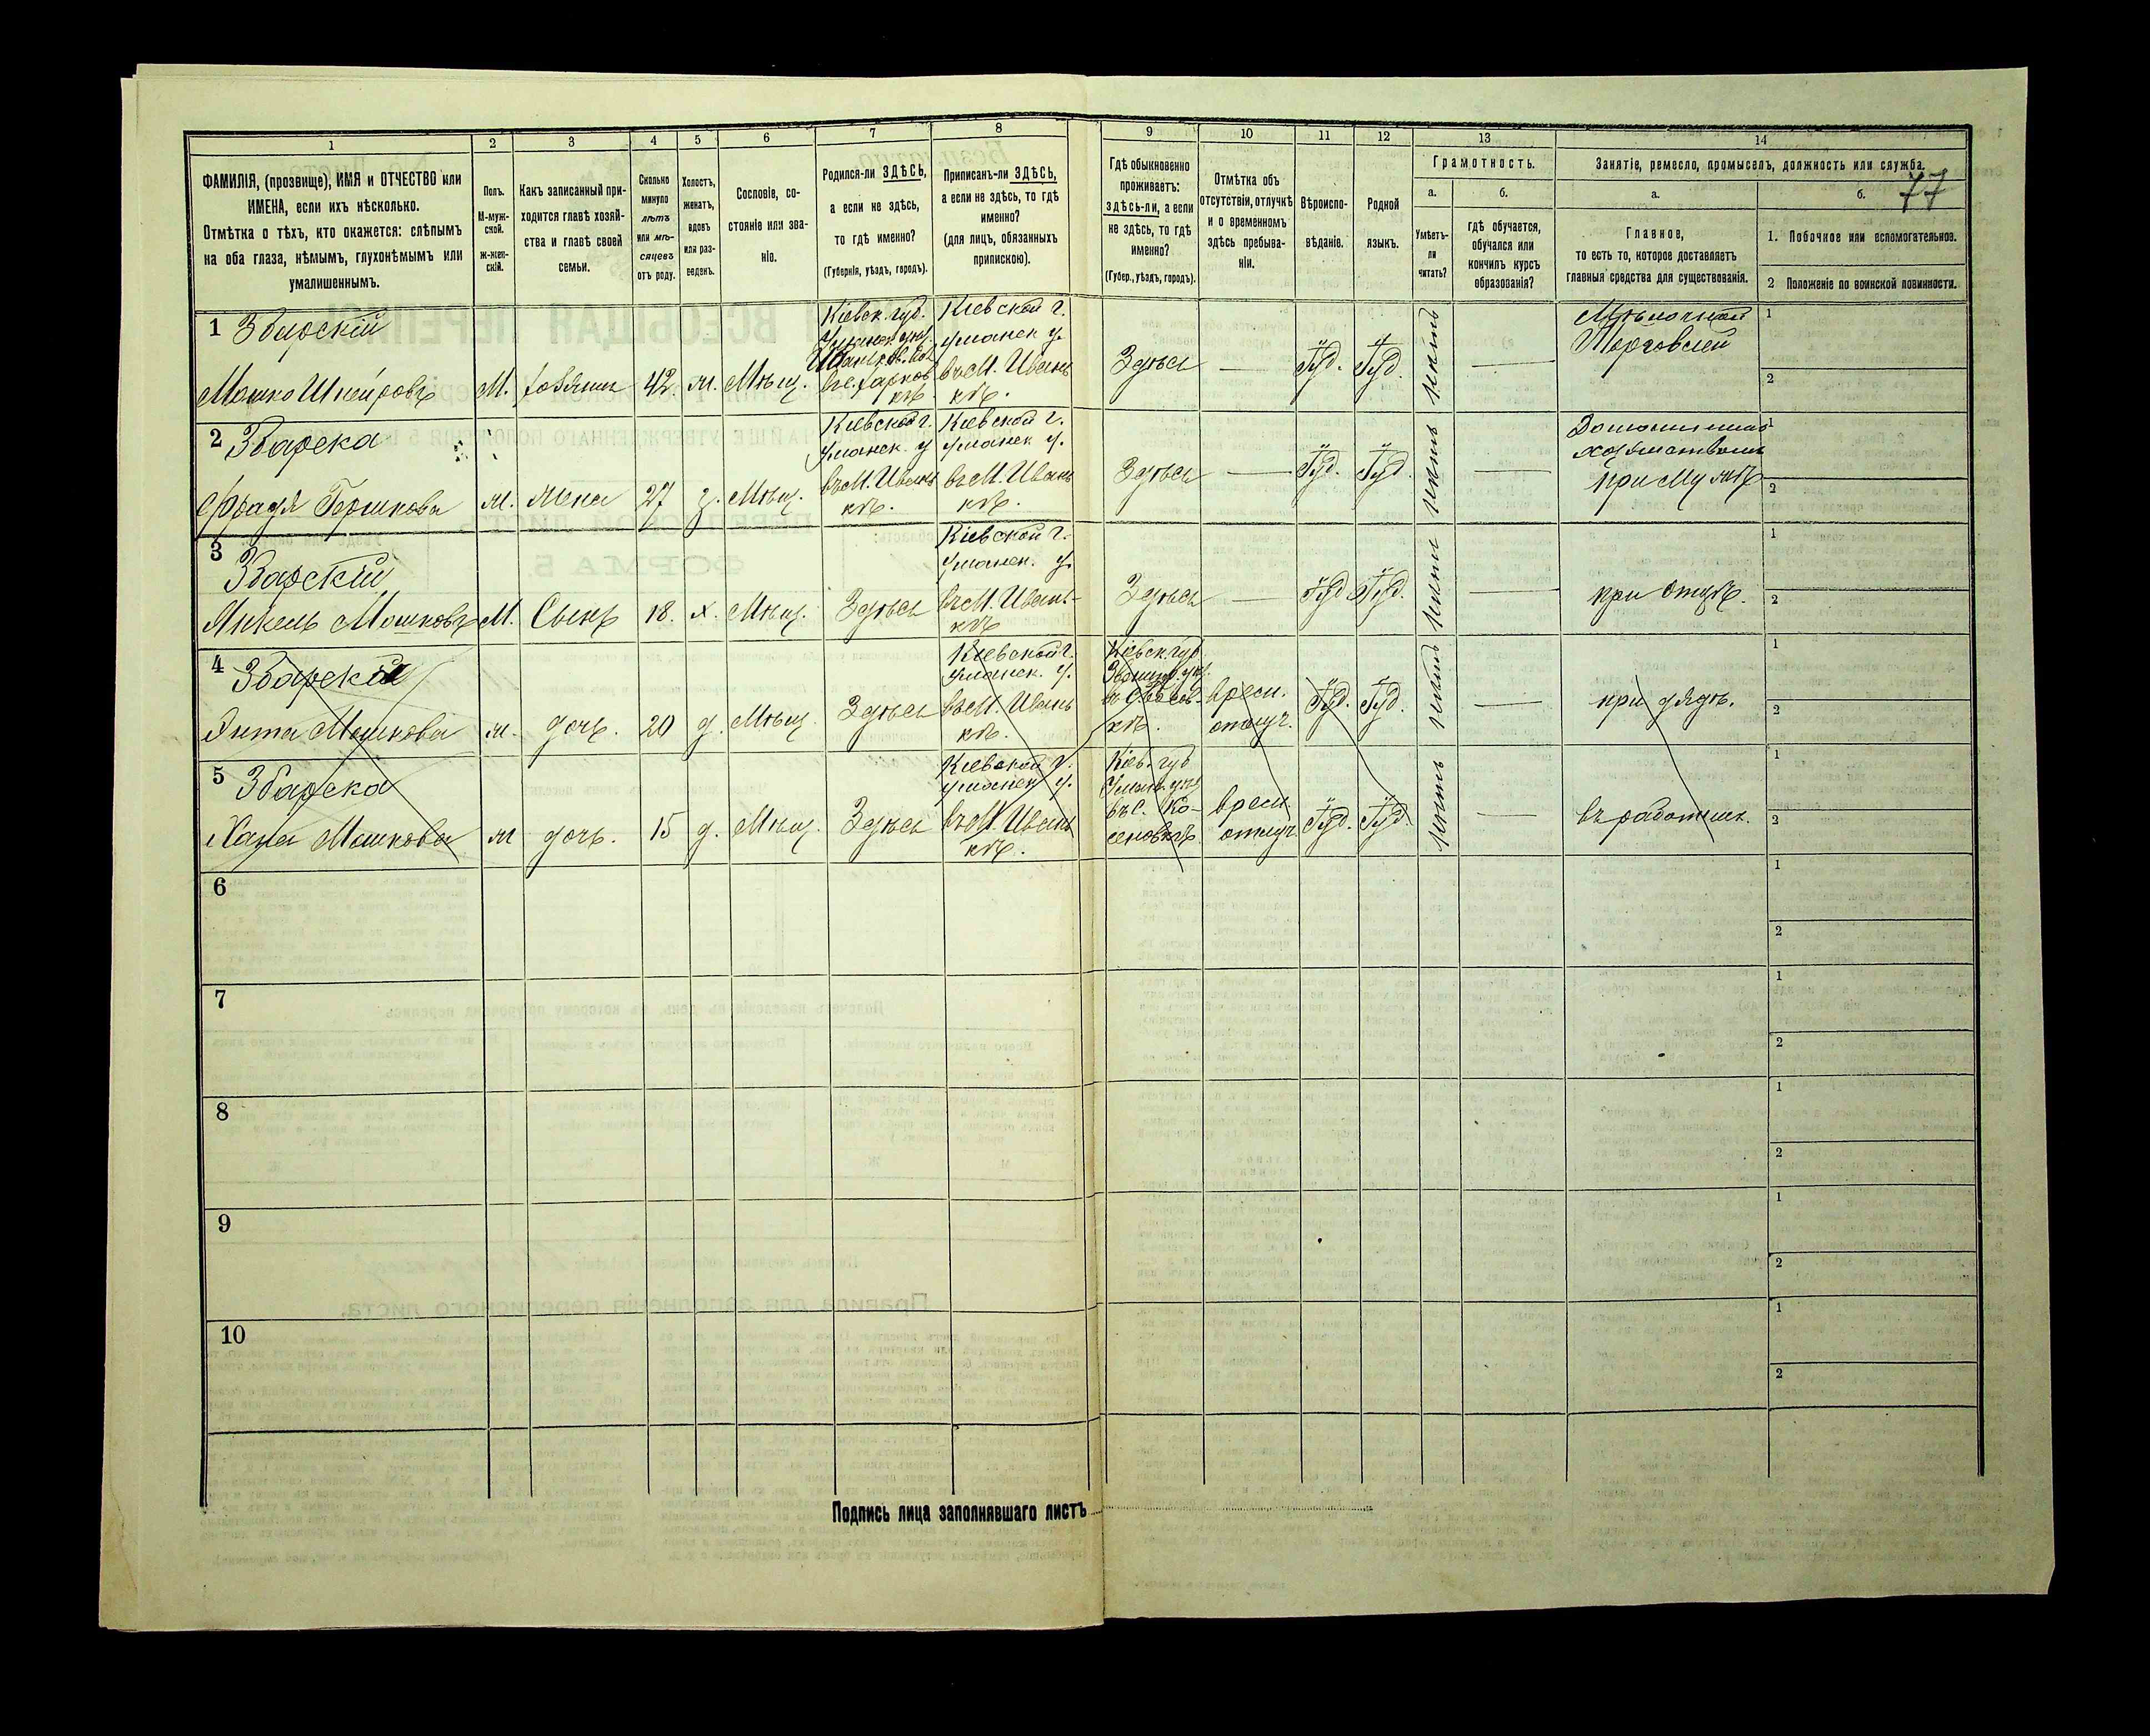 1 2 3 4 5 6 7 8 9 10 11 12 13 14
ФАМИЛІЯ, (прозвище), ИМЯ и ОТЧЕСТВО или
ИМЕНА, если ихъ нѣсколько.
Отмѣтка о тѣхъ, кто окажется: слѣпымъ
на оба глаза, нѣмымъ, глухонѣмымъ или
умалишеннымъ.
Полъ.
М-муж-
ской.
Ж-жен-
скій.
Какъ записанный при-
ходится главѣ хозяй-
ства и главѣ своей
семьи.
Сколько
минуло
лѣтъ
или мѣ-
сяцевъ
отъ роду.
Холостъ,
женатъ,
вдовъ
или раз-
веденъ.
Сословіе, со-
стояніе или зва-
ніе.
Родился-ли ЗДѢСЬ,
а если не здѣсь,
то гдѣ именно?
(Губернія, уѣздъ, городъ).
Приписанъ-ли ЗДѢСЬ,
а если не здѣсь, то гдѣ
именно?
(для лицъ, обязанныхъ
припискою).
Гдѣ обыкновенно
проживаетъ:
здѣсь-ли, а если
не здѣсь, то гдѣ
именно?
(Губер., уѣздъ, городъ).
Отмѣтка объ
отсутствіи, отлучкѣ
и о временномъ
здѣсь пребыва-
ніи.
Вѣроиспо-
вѣданіе.
Родной
языкъ.
Грамотность.
а.
Умѣетъ-
ли
читать?
б.
гдѣ обучается,
обучался или
кончилъ курсъ
образованія?
Занятіе, ремесло, промыселъ, должность или служба.
77
а.
Главное,
то есть то, которое доставляетъ
главныя средства для существованія.
б.
1. Побочное или вспомогательное.
2 Положеніе по воинской повинности.
1 Збарскій
Мошко
М.
42
ж.
Мѣщ.
Кіевск. губ.
Кіевской г.
Уманск у.
въ М. Иванъ
кѣ.
Здѣсь
—
Іуд.
Іуд.
—
Мѣлочной
Торговлей
1
2
2 Збарска
Гершкова
ж.
жена
27
з.
Мѣщ.
Кіевской г.
Уманск. у
въ М. Иванъ
кѣ.
Кіевской г.
Уманск у.
въ М. Иванъ
кѣ.
Здѣсь
—
Іуд.
Іуд.
—
при Мужѣ
1
2
3
Збарскій
Янкель Мошковъ
М.
Сынъ
18.
х.
Мѣщ.
Здѣсь
Кіевской г.
Уманск. у.
въ М. Иванъ-
кѣ
Здѣсь
—
Іуд
Іуд.
—
при Отцѣ.
1
2
4
Мошкова
ж.
дочь.
20
д.
Мѣщ.
Здѣсь
Кіевской г.
Уманск. у.
въ М. Иванъ
кѣ.
Кіевск. губ
врем.
отлуч.
Іуд.
Іуд.
—
при дядѣ.
1
2
5
Збарска
Хана Мошкова
ж
дочь.
15
д.
Мѣщ.
Здѣсь
Кіевской г.
Уманск у.
въ М. Иванъ
кѣ.
Кіев. губ
врем.
отлуч
Іуд.
Іуд.
—
1
2
6
1
2
7
1
2
8
1
2
9
1
2
10
1
2
Подпись лица заполнявшаго листъ